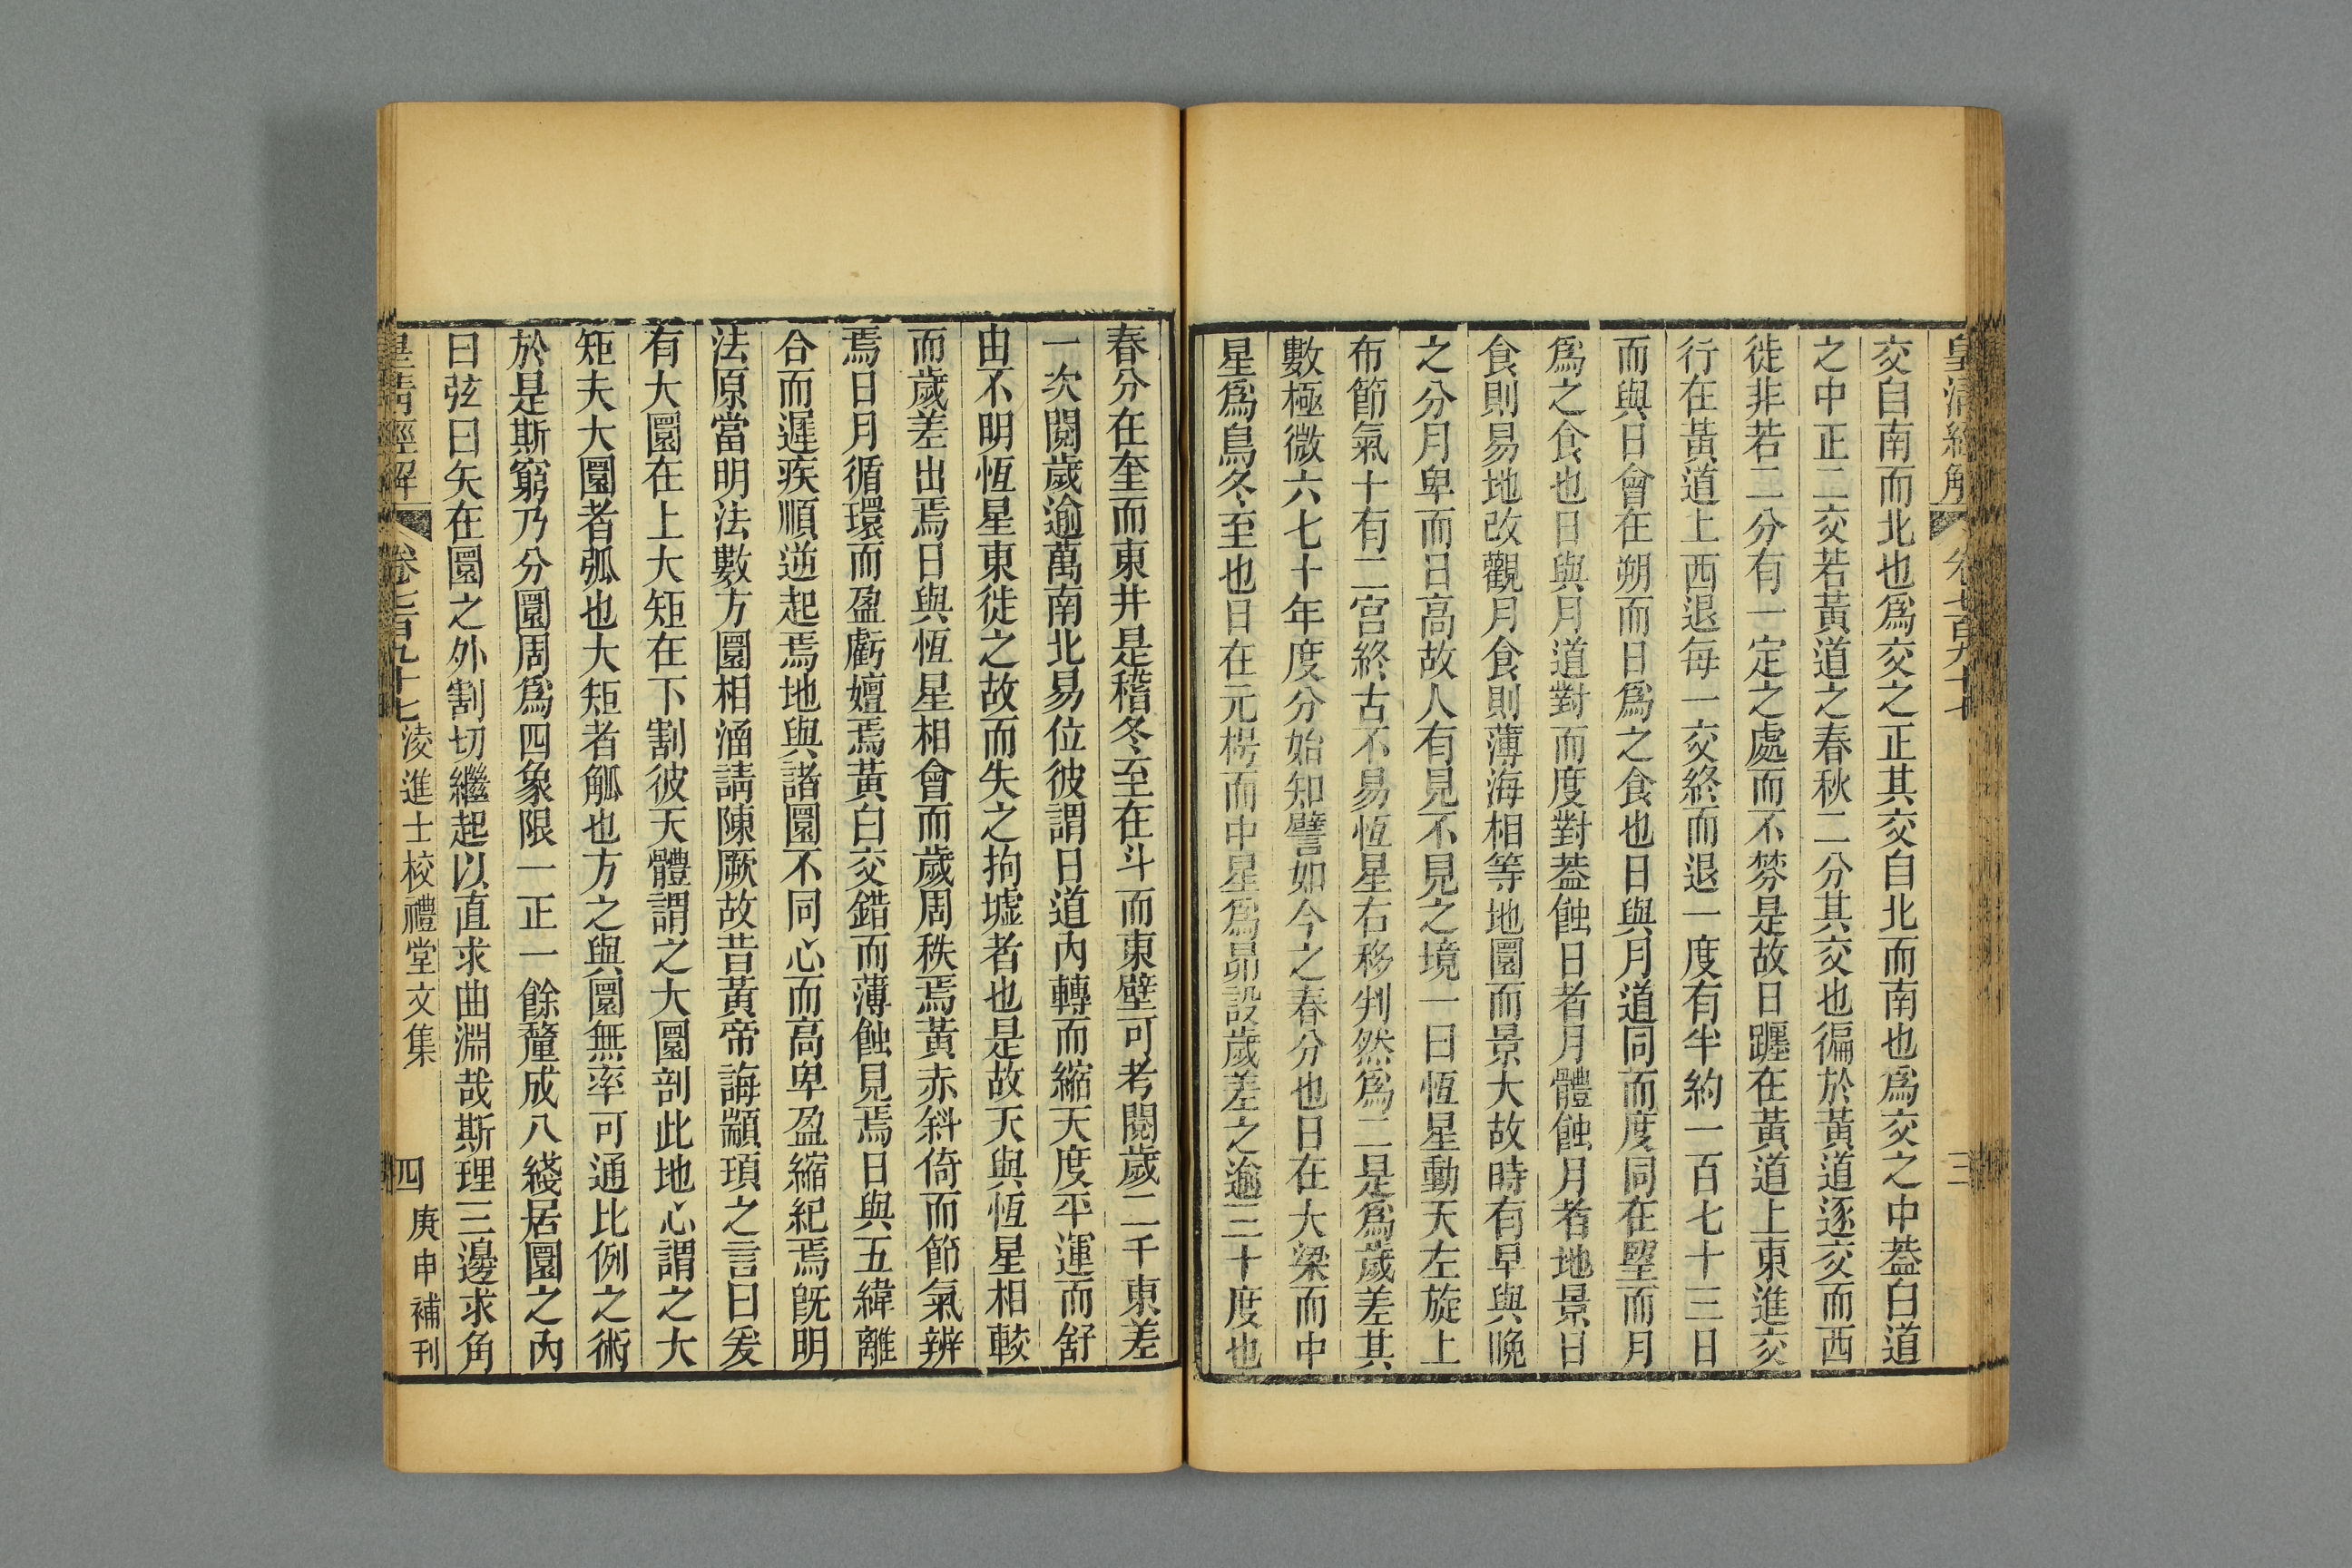 皇清經解
卷七百九十七
三
交自南而北也爲交之正其交自北而南也爲交之中葢白道
之中正二交若黃道之春秋二分其交也徧於黃道逐交而西
徙非若二分有一定之處而不棼是故日躔在黃道上東進交
行在黃道上西退每一交終而退一度有半約一百七十三日
而與日會在朔而日爲之食也日與月道同而度同在朢而月
爲之食也日與月道對而度對葢蝕日者月體蝕月者地景日
食則易地改觀月食則薄海相等地圜而景大故時有早與晚
之分月卑而日高故人有見不見之境一曰恆星動天左旋上
布節氣十有二宮終古不易恆星右移判然爲二是爲歲差其
數極微六七十年度分始知譬如今之春分也日在大梁而中
星爲鳥冬至也日在元枵而中星爲昴設歲差之逾三十度也
春分在奎而東井是稽冬至在斗而東壁可考閱歲二千東差
一次閱歲逾萬南北易位彼謂日道內轉而縮天度平運而舒
由不明恆星東徙之故而失之拘墟者也是故天與恆星相較
而歲差出焉日與恆星相會而歲周秩焉黃赤斜倚而節氣辨
焉日月循環而盈虧嬗焉黃白交錯而薄蝕見焉日與五緯離
合而遲疾順逆起焉地與諸圜不同心而高卑盈縮紀焉旣明
法原當明法數方圜相涵請陳厥故昔黃帝誨顓頊之言曰爰
有大圜在上大矩在下割彼天體謂之大圜剖此地心謂之大
矩夫大圜者弧也大矩者觚也方之與圜無率可通比例之術
於是斯窮乃分圜周爲四象限一正一餘釐成八綫居圜之內
曰弦曰矢在圜之外割切繼起以直求曲淵哉斯理三邊求角
皇清經解
卷七百九十七
淩進士校禮堂文集
四
庚申補刊